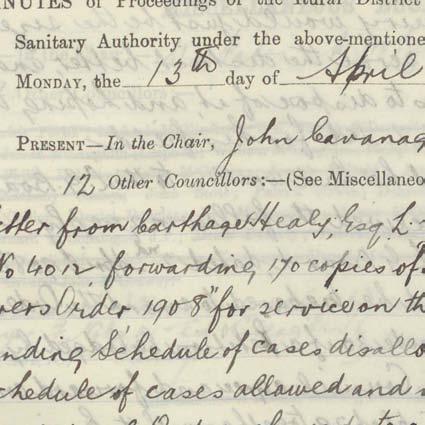 MINUTES of Proceedings of the Rural District
Sanitary Authority under the above-mentione
MONDAY, the 13th day of April
PRESENT—In the Chair, John Cavanag
12 Other Councillors:—(See Miscellaneo
etter from Carthage Healy, Esq L.
No 4012, forwarding 170 copies of
rers Order 1908" for service on th
nding Schedule of cases disallo
chedule of cases allowed and